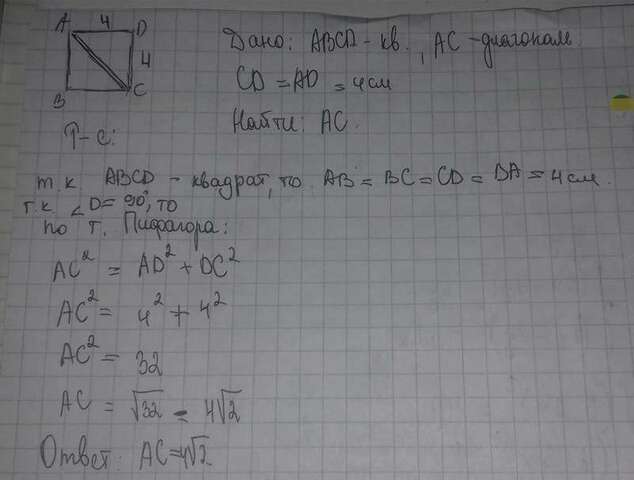 A 4 D
4
B C
Дано: ABCD - кв., AC - диагональ.
CD = AD = 4 см
Найти: AC.
Р-е:
т.к. ABCD - квадрат, то AB = BC = CD = DA = 4 см.
т.к. ∠D = 90°, то
по т. Пифагора:
AC² = AD² + DC²
AC² = 4² + 4²
AC² = 32
AC = √32 = 4√2
Ответ: AC = 4√2